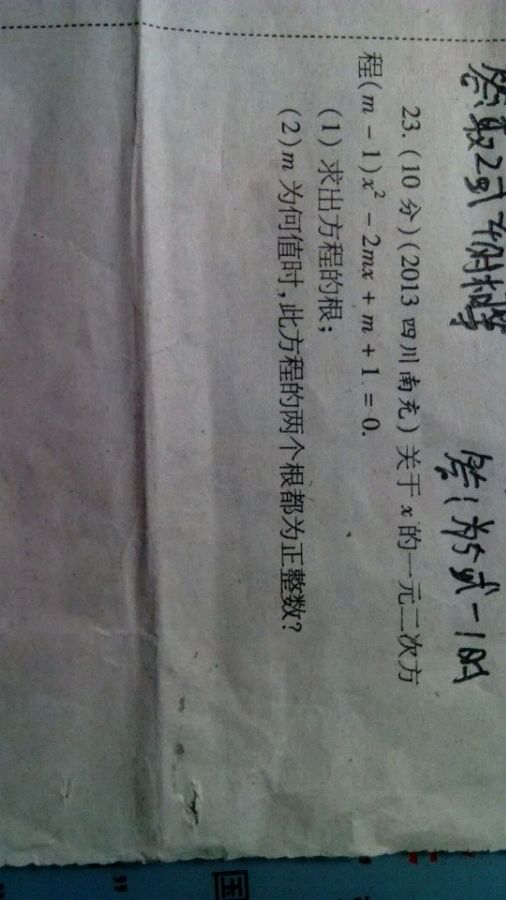 答取2或4时相等 答:为5或-1时
23.(10 分)(2013 四川南充)关于 x 的一元二次方
程(m - 1)x² - 2mx + m + 1 = 0.
(1) 求出方程的根;
(2) m 为何值时,此方程的两个根都为正整数?
国